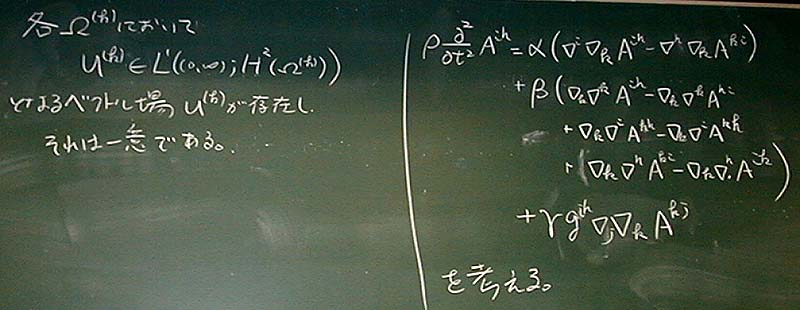 各Ω^(k)において
u^(k) ∈ L¹((0,∞); H²(Ω^(k)))
となるベクトル場 u^(k) が存在し、
それは一意である。
ρ ∂²/∂t² A^{ih} = α(∇^i ∇_k A^{kh} − ∇^h ∇_k A^{ki})
+ β(∇_k ∇^k A^{ih} − ∇_k ∇^k A^{hi}
+ ∇_k ∇^i A^{hk} − ∇_k ∇^i A^{kh}
+ ∇_k ∇^h A^{ki} − ∇_k ∇^h A^{ik})
+ γ g^{ih} ∇_j ∇_k A^{kj}
を考える。